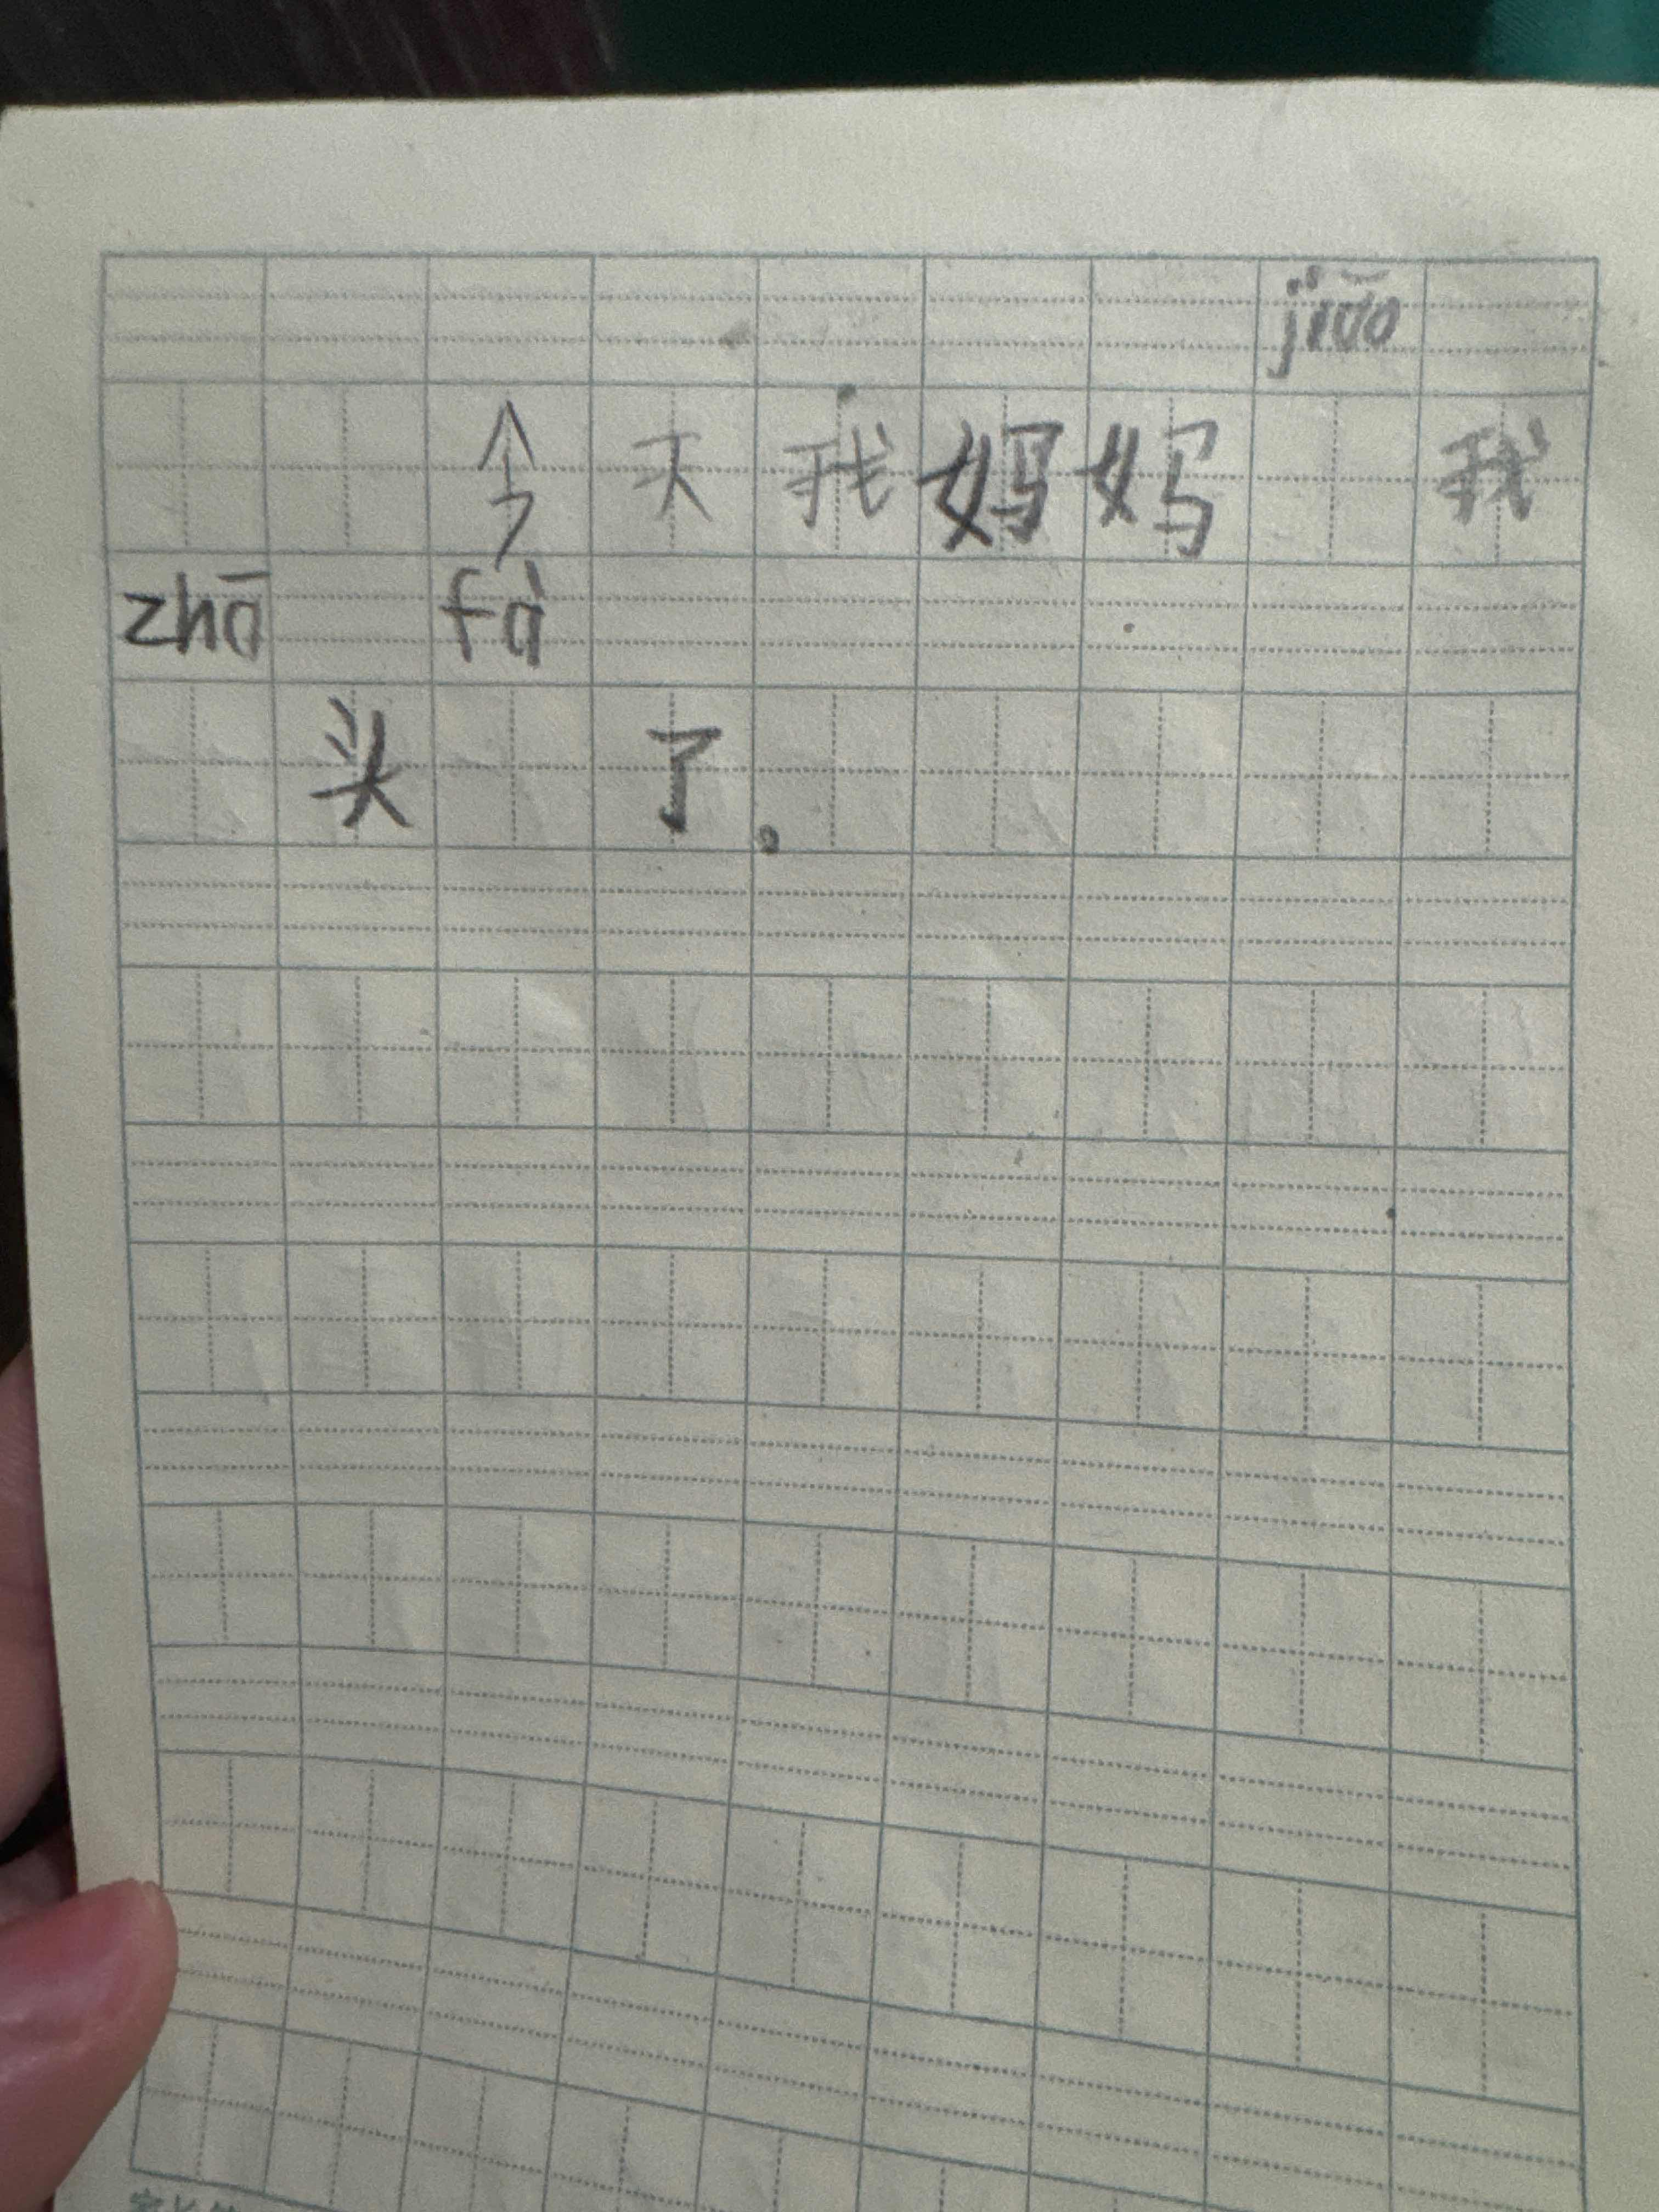 jiāo
今天我妈妈 我
zhā fà
头 了。